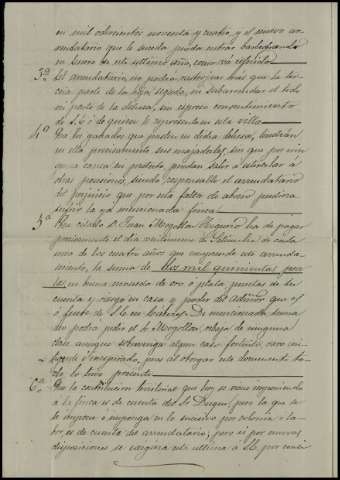 en mil ochocientos noventa y cuatro, y el nuevo arren
datario que le suceda pueda entrar barbechando
en Enero de este último año, como va referido
3ª El arrendatario no podrá rastrojar mas que la ter
cera parte de la hoja segada, ni subarrendar el todo
ni parte de la dehesa, sin espreso consentimiento
de S.E. ó de quien le represente en esta villa
4ª Que los ganados que pasten en dicha dehesa, tendrán
en ella precisamente sus majadales, sin que por nin
guna causa ni pretesto, puedan salir a establar á
otras posesiones, siendo responsable el arrendatario
del perjuicio que por esta falta de abono pudiera
sufrir la ya mencionada finca
5ª Que citado D. Juan Mogollon Perguero ha de pagar
precisamente el dia veintinueve de Setiembre de cada
uno de los cuatro años que comprende este arrenda
miento, la suma de Dos mil quinientas pese
tas en buena moneda de oro ó plata, puestas de su
cuenta y riesgo en casa y poder del Admor que es
ó fuese de S.E. en Cáceres. De mencionada suma
no podrá pedir el Sr. Mogollon, rebaja de ninguna
clase, aunque sobrevenga algun caso fortuito, raro, im
previsto é inesperado, pues al otorgar este documento to
do lo tuvo presente
6ª Que la contribucion territorial que hoy se viene imponiendo
á la finca es de cuenta del Sr. Duque; pero la que se
le impone ó imponga en lo sucesivo por colonia ó la
bor, es de cuenta del arrendatario; pero si por nuevas
disposiciones se cargara esta última á S.E. por conve